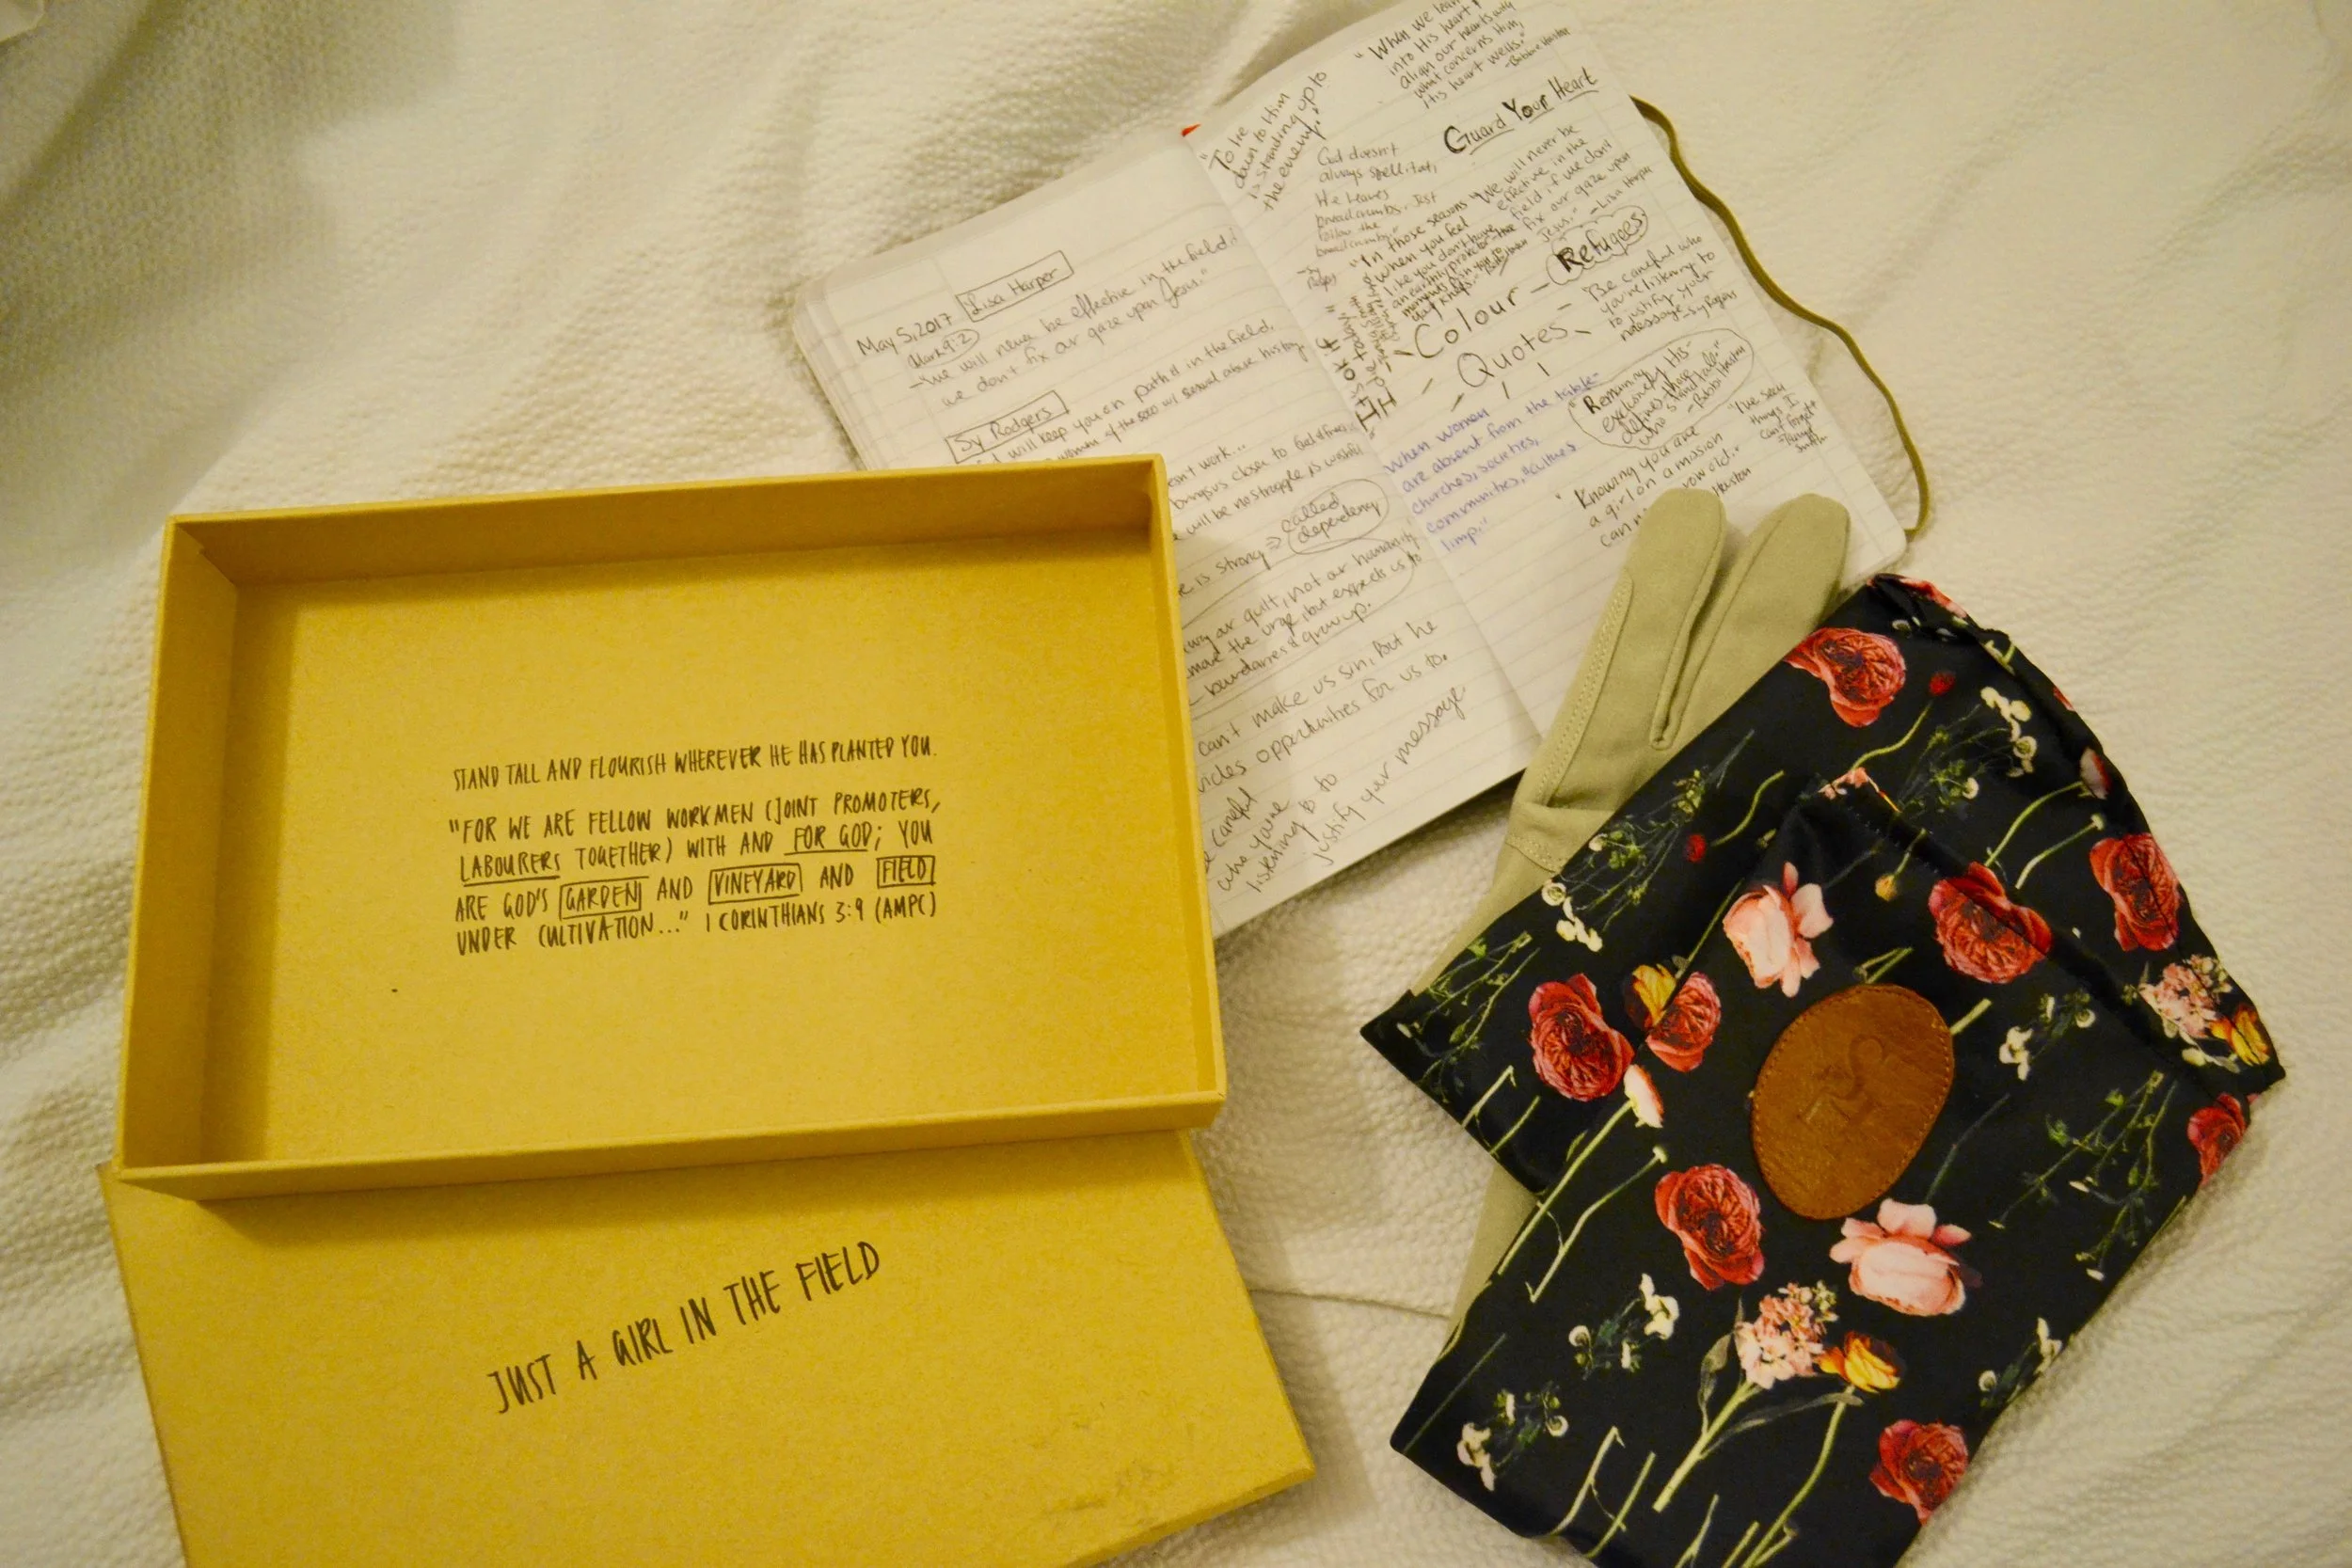 STAND TALL AND FLOURISH WHEREVER HE HAS PLANTED YOU.
"FOR WE ARE FELLOW WORKMEN (JOINT PROMOTERS,
LABOURERS TOGETHER) WITH AND FOR GOD; YOU
ARE GOD'S GARDEN AND VINEYARD AND FIELD
UNDER CULTIVATION..." 1 CORINTHIANS 3:9 (AMPC)
JUST A GIRL IN THE FIELD
May 5, 2017 Lisa Harper
Mark 9:2
-"We will never be effective in the field if
we don't fix our gaze upon Jesus."
Sy Rodgers
will keep you on path & in the field.
woman w/ sexual abuse history
work...
brings us closer to God
will be no struggle is
is strong => called
dependency
our guilt, not our humanity
the urge, but expects us to
boundaries & grow up.
can't make us sin, But he
opportunities for us to.
careful
who you're
listening to to
justify your message
"To lie
down to Him
is standing up to
the enemy."
"When we lean
into His heart
align our hearts with
what concerns Him,
His heart wells."
Guard Your Heart
God doesn't
always spell it out,
He leaves
breadcrumbs. Just
follow the
breadcrumbs."
"We will never be
effective in the
field if we don't
fix our gaze upon
Jesus." -Lisa Harper
"In those seasons
when you feel
like you don't have
an earthly protector
Refugees
Colour
Quotes
"Be careful who
you're listening to
to justify your
message" -Sy Rogers
It's OK if
"Remaining
exclusively His-
defines those
who stand tall."
"When women
are absent from the table-
churches, societies,
communities, & cultures
limp."
"I've seen
things I
can't forget"
"Knowing you are
a girl on a mission
can
grow old."